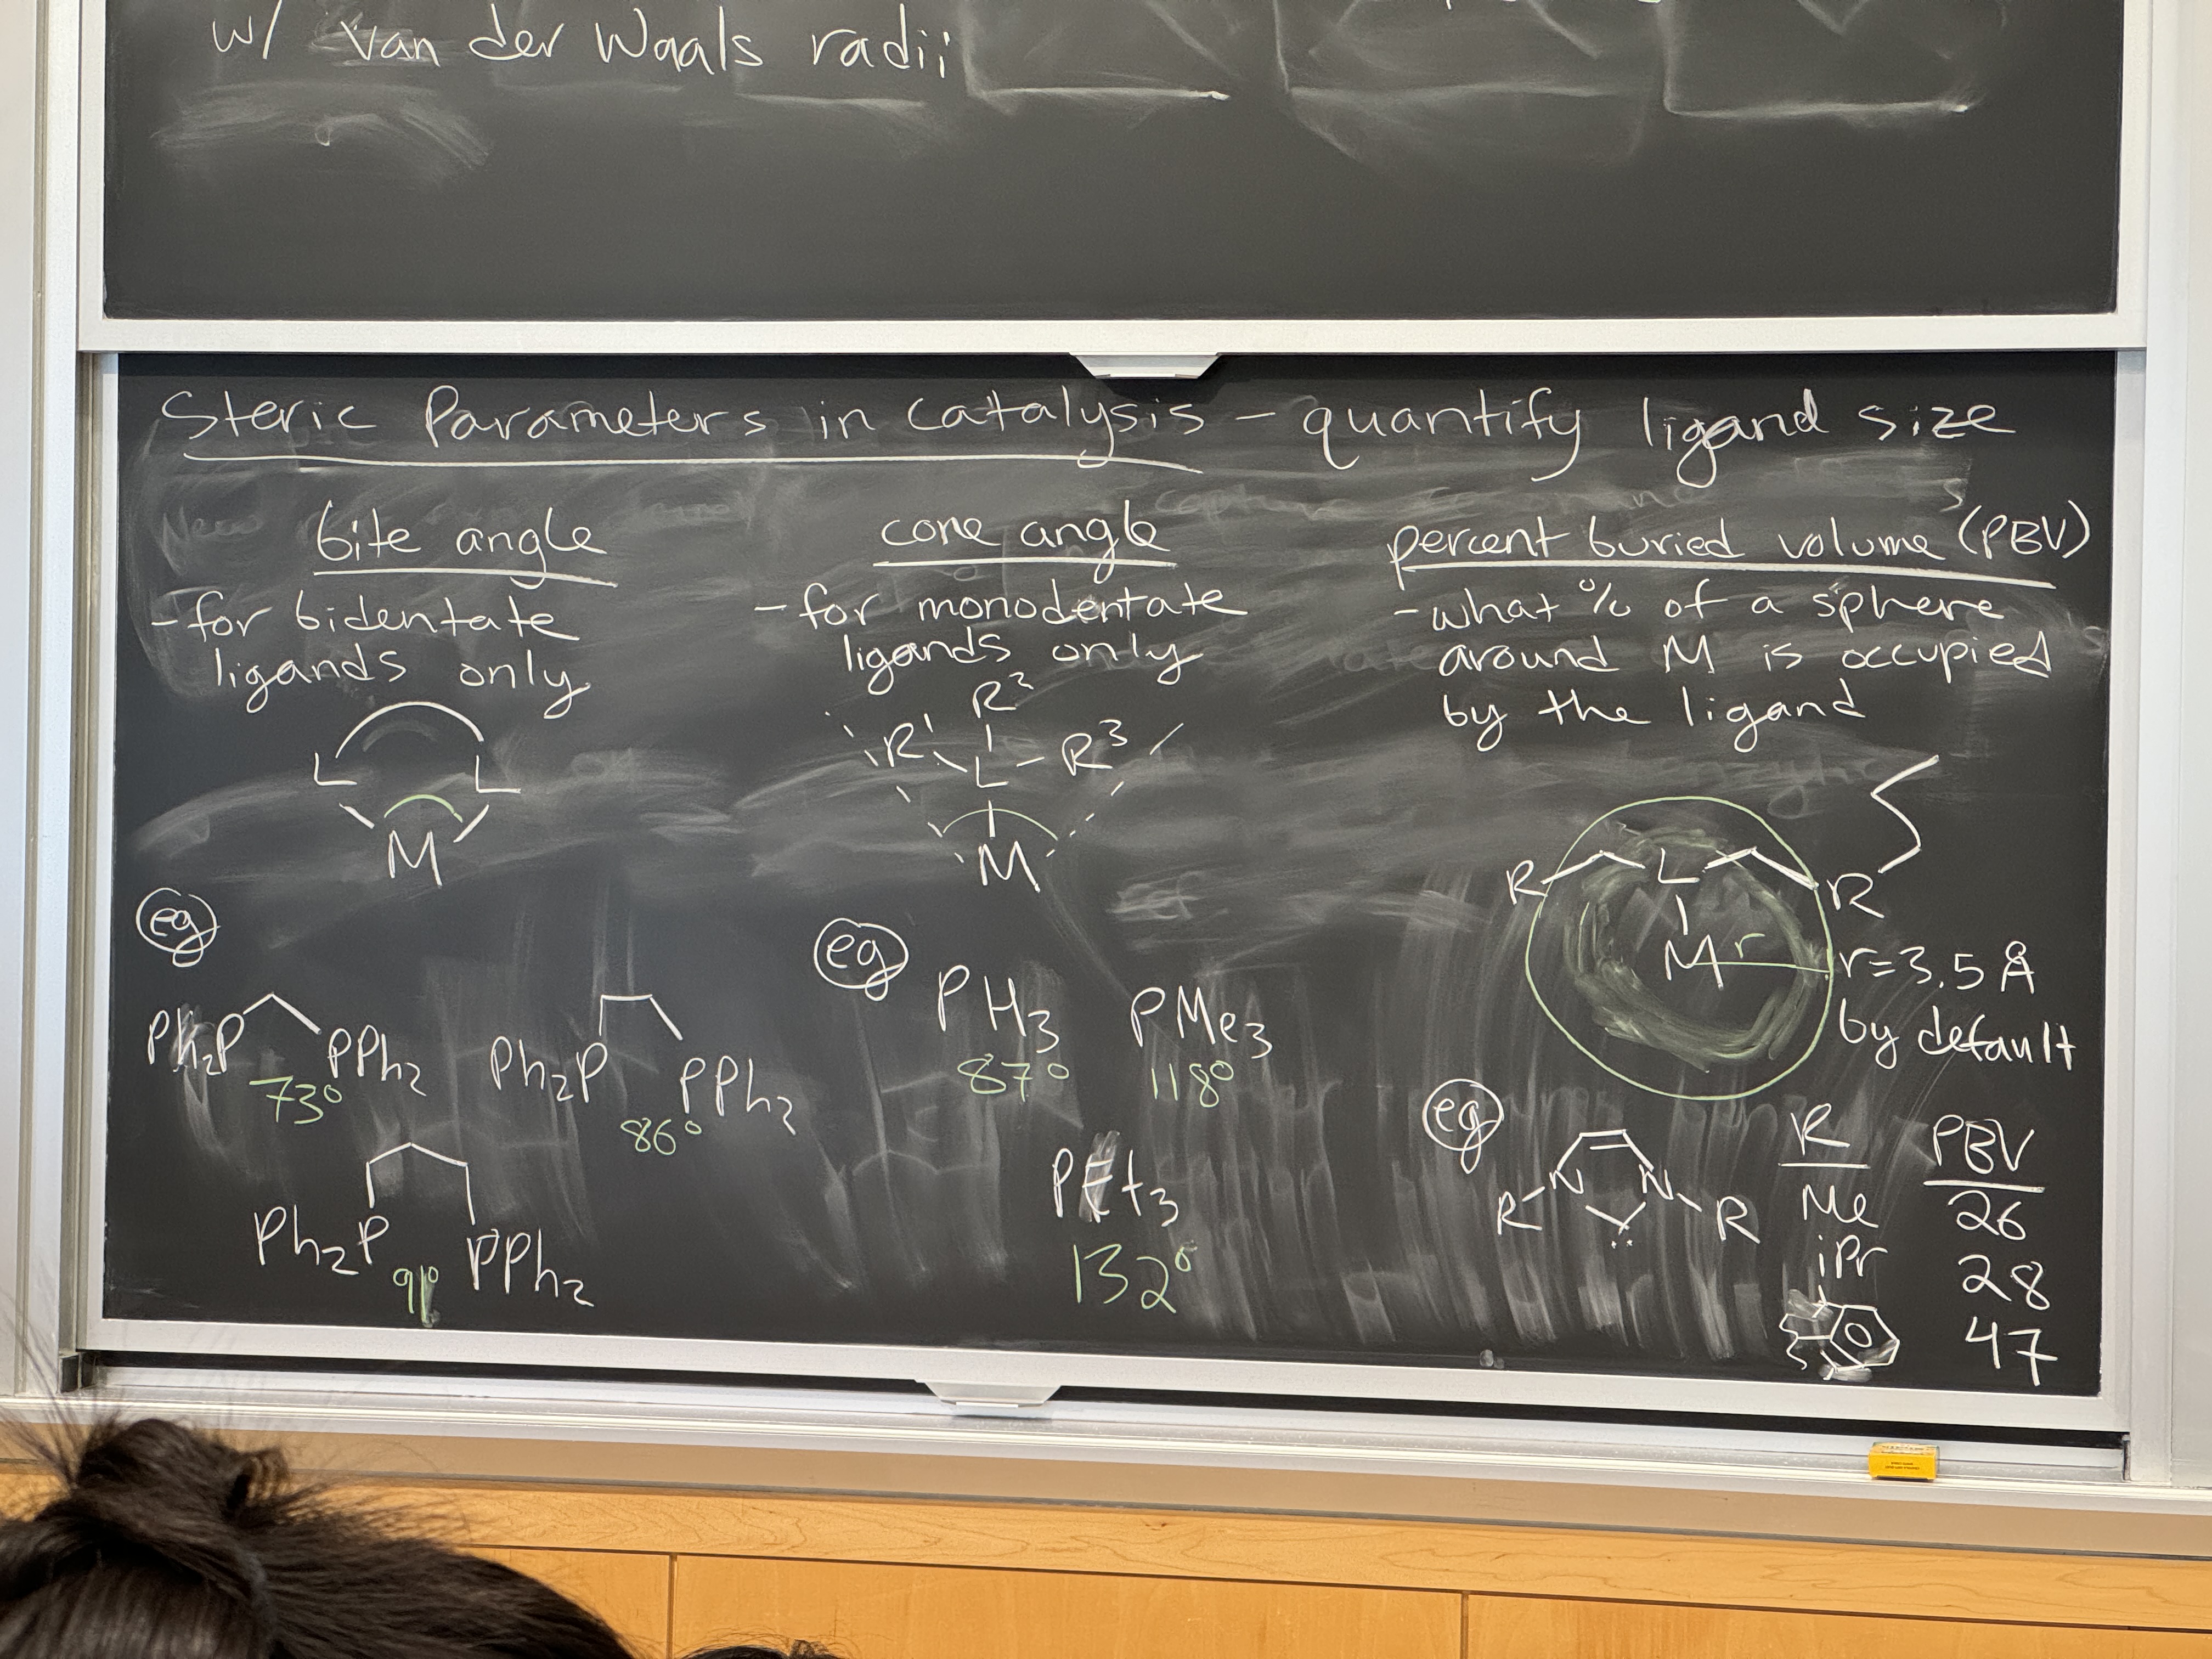 w/ van der Waals radii
Steric Parameters in catalysis - quantify ligand size
bite angle
- for bidentate
ligands only
L L
M
eg
Ph₂P PPh₂
73°
Ph₂P PPh₂
86°
Ph₂P PPh₂
91°
cone angle
- for monodentate
ligands only
R²
R¹ L - R³
M
eg
PH₃ PMe₃
87° 118°
PEt₃
132°
percent buried volume (PBV)
- what % of a sphere
around M is occupied
by the ligand
R L R
M r
r=3.5 Å
by default
eg
R-N N-R
R PBV
Me 26
iPr 28
47